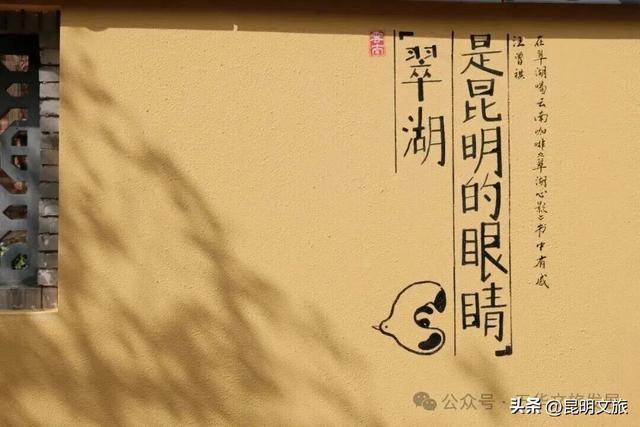 「翠湖
是昆明的眼睛」
汪曾祺
在翠湖喝云南咖啡《翠湖心影》书中有感
公众号 · 华文旅发展
头条 @昆明文旅